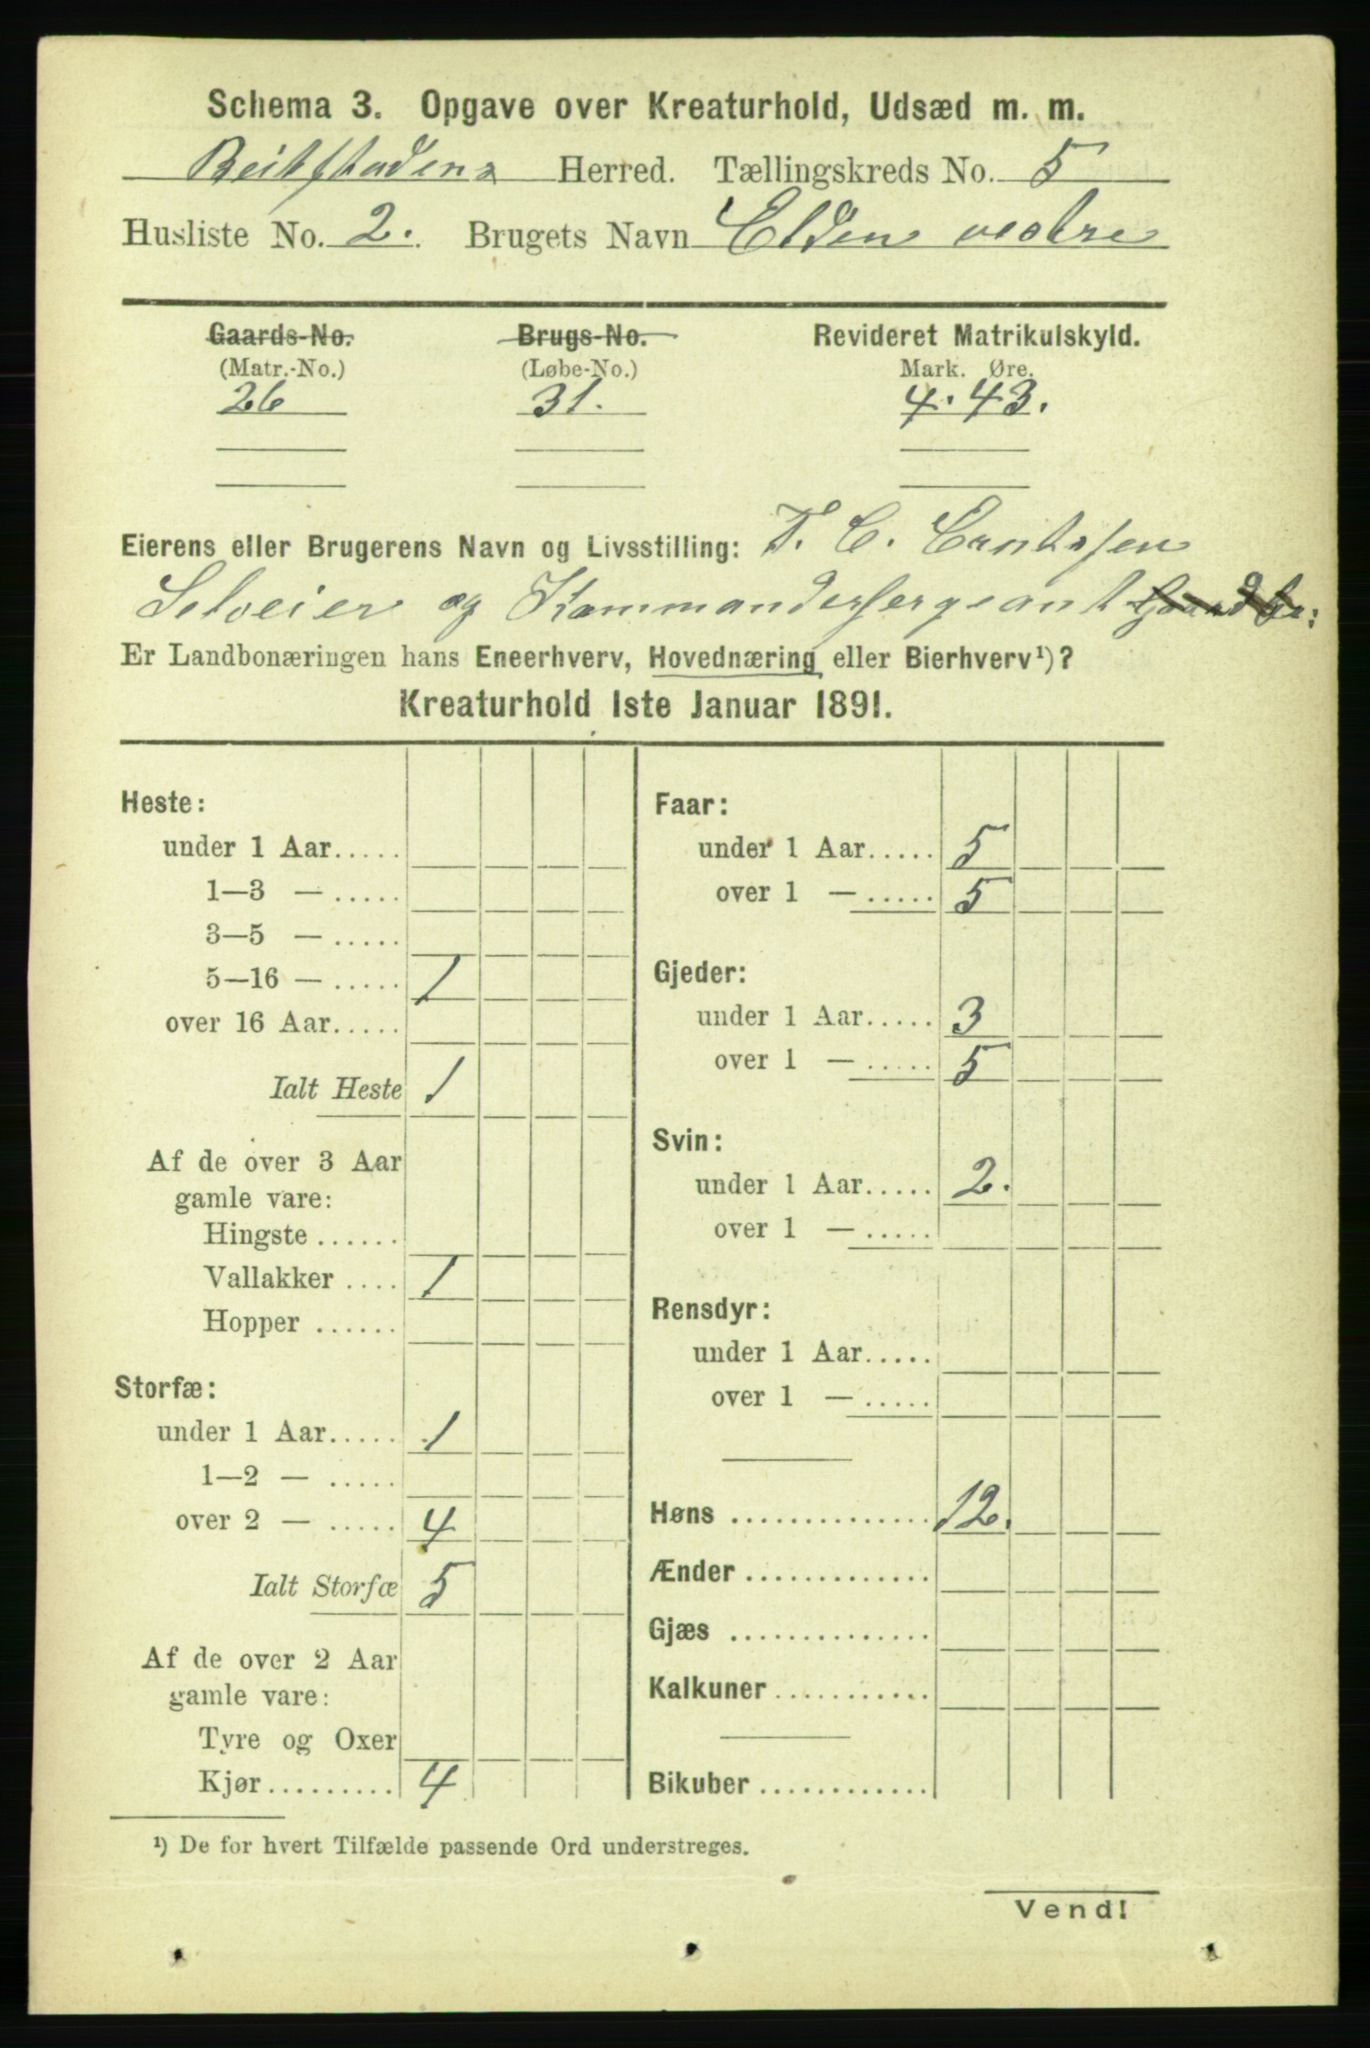 Schema 3. Opgave over Kreaturhold, Udsæd m. m.
Beitstadens Herred. Tællingskreds No. 5
Husliste No. 2. Brugets Navn Elden vestre
Gaards-No. Brugs-No. Revideret Matrikulskyld.
(Matr.-No.) (Løbe-No.) Mark. Øre.
26 31. 4.43.
Eierens eller Brugerens Navn og Livsstilling: C. Erntssen
Selveier og Kommandersergeant
Er Landbonæringen hans Eneerhverv, Hovednæring eller Bierhverv¹)?
Kreaturhold 1ste Januar 1891.
Heste:
under 1 Aar.....
1—3 — .....
3—5 — .....
5—16 — ..... 1
over 16 Aar.....
Ialt Heste 1
Af de over 3 Aar
gamle vare:
Hingste ......
Vallakker .... 1
Hopper ......
Storfæ:
under 1 Aar..... 1
1—2 — .....
over 2 — ..... 4
Ialt Storfæ 5
Af de over 2 Aar
gamle vare:
Tyre og Oxer
Kjør......... 4
Faar:
under 1 Aar..... 5
over 1 — ..... 5
Gjeder:
under 1 Aar..... 3
over 1 — ..... 5
Svin:
under 1 Aar..... 2.
over 1 — .....
Rensdyr:
under 1 Aar.....
over 1 — .....
Høns .............. 12.
Ænder .............
Gjæs ..............
Kalkuner ...........
Bikuber ............
¹) De for hvert Tilfælde passende Ord understreges.
Vend!